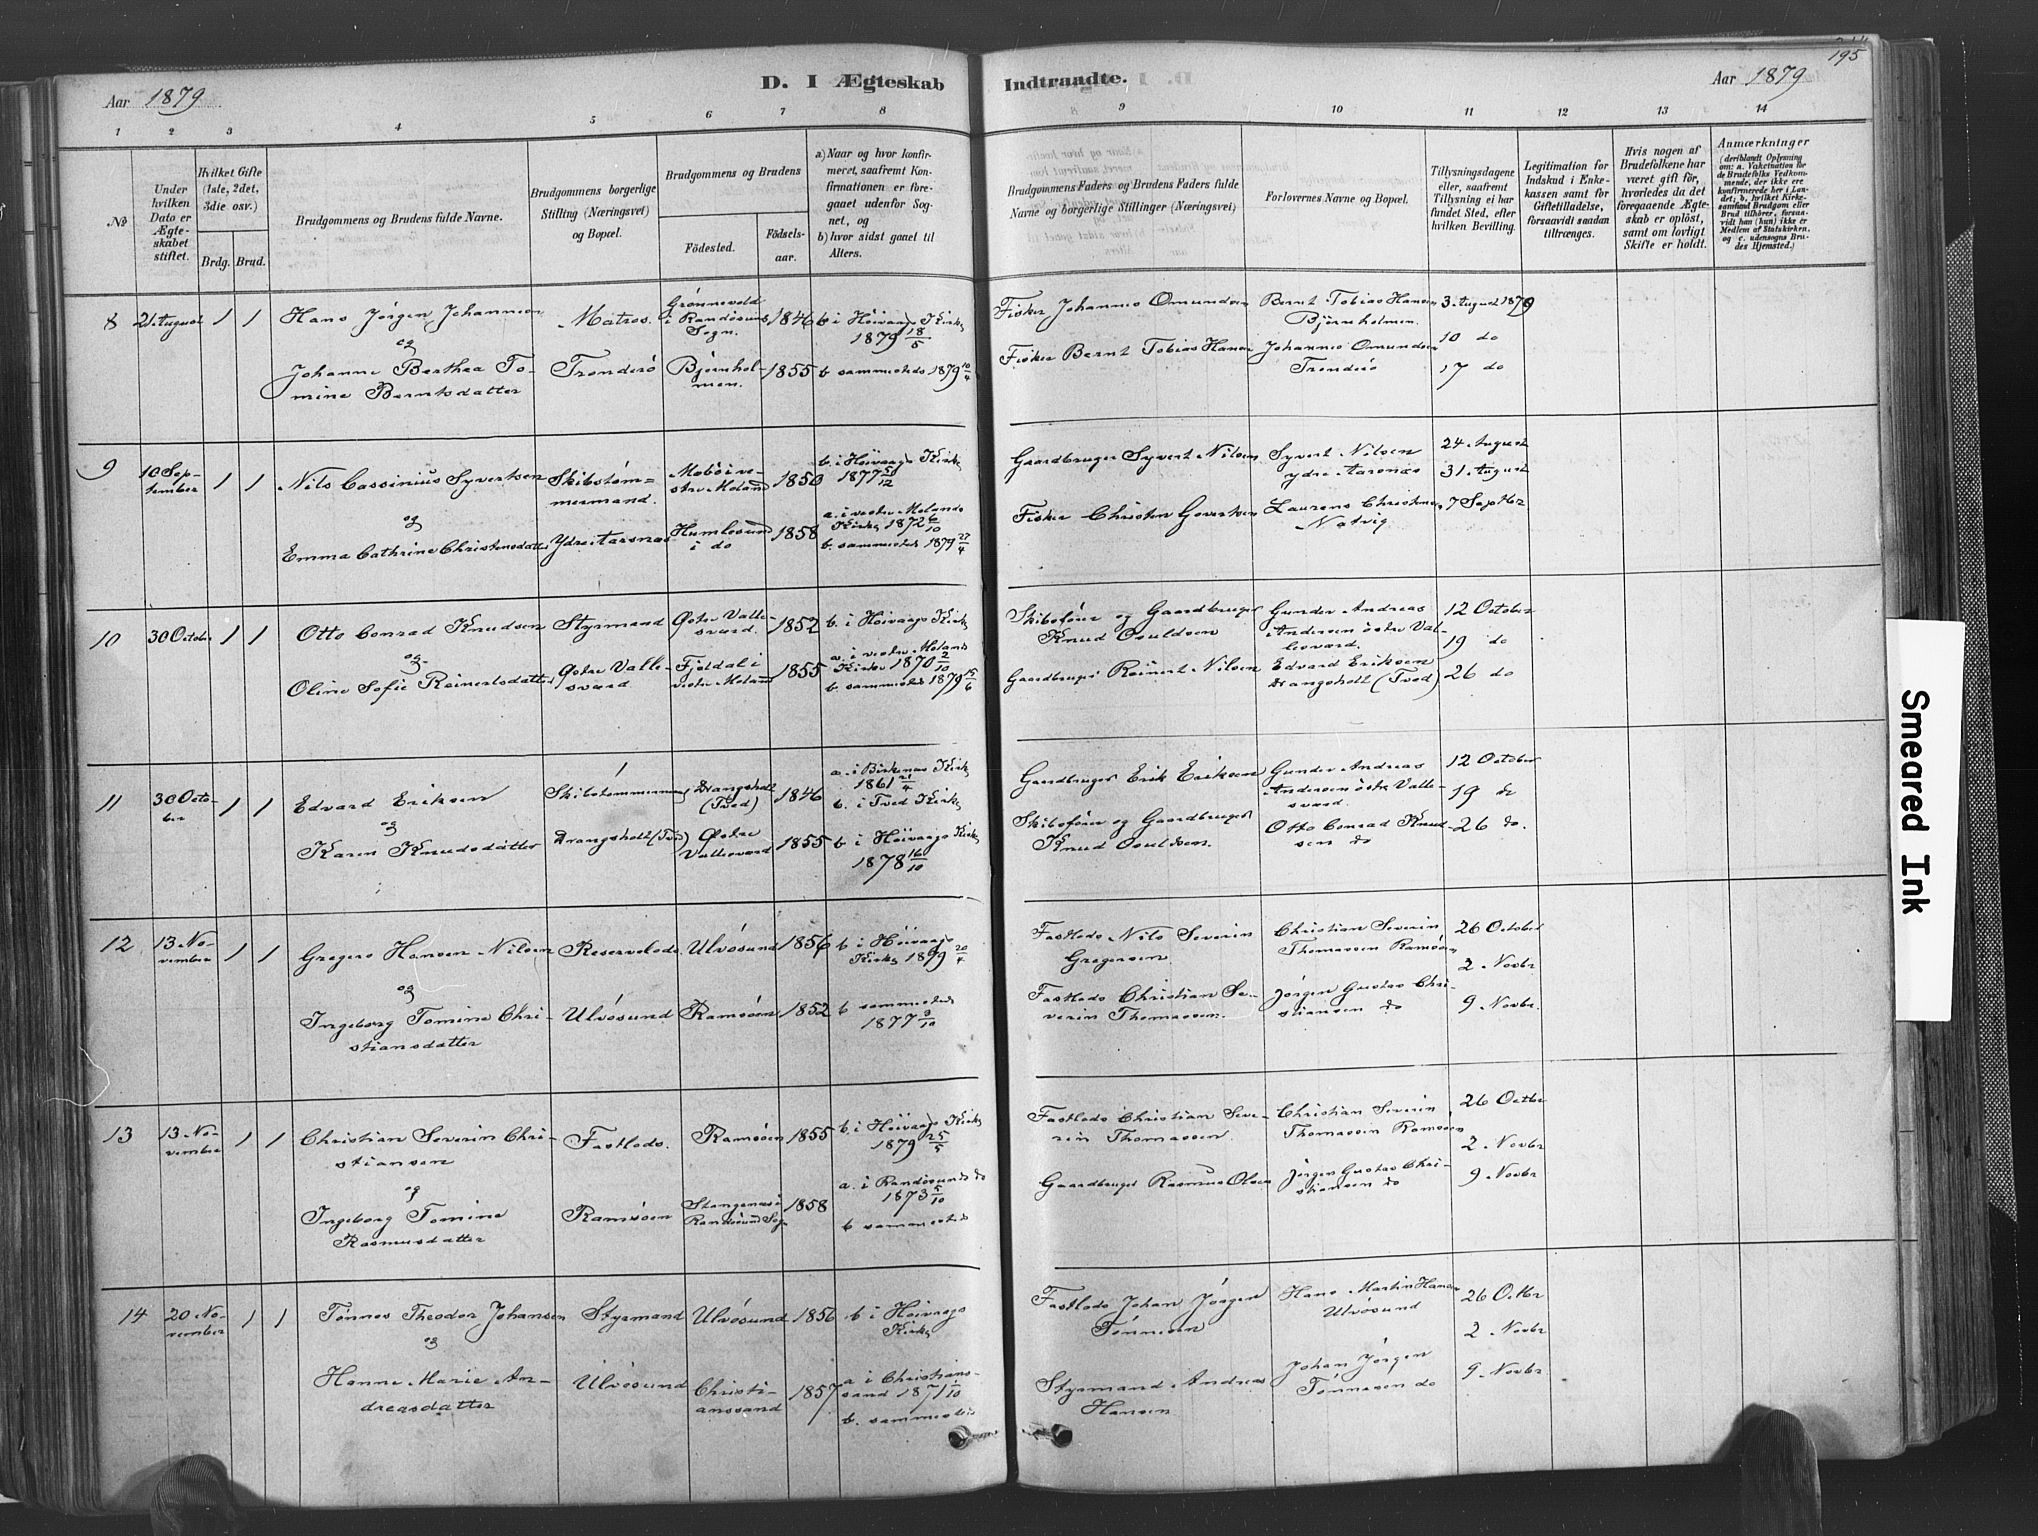 195
Aar 1879
D. I Ægteskab
Indtraadte.
Aar 1879
1 2 3 4 5 6 7 8
8 9 10 11 12 13 14
No
Under hvilken Dato er Ægteskabet stiftet.
Hvilket Gifte (1ste, 2det, 3die osv.)
Brdg. Brud.
Brudgommens og Brudens fulde Navne.
Brudgommens borgerlige Stilling (Næringsvei) og Bopæl.
Brudgommens og Brudens
Födested.
Födsels-aar.
a) Naar og hvor konfirmeret, saafremt Konfirmationen er foregaaet udenfor Sognet, og
b) hvor sidst gaaet til Alters.
Brudgommens Faders og Brudens Faders fulde Navne og borgerlige Stillinger (Næringsvei)
Forlovernes Navne og Bopæl.
Tillysningsdagene eller, saafremt Tillysning ei har fundet Sted, efter hvilken Bevilling.
Legitimation for Indskud i Enkekassen samt for Giftetilladelse, forsaavidt saadan tiltrænges.
Hvis nogen af Brudefolkene har været gift för, hvorledes da det foregaaende Ægteskab er oplöst, samt om lovligt Skifte er holdt.
Anmærkninger
(deriblandt Oplysning om: a. Vaksination for de Brudefolks Vedkommende, der ikke ere konfirmerede her i Landet; b. hvilket Kirkesamfund Brudgom eller Brud tilhörer, forsaavidt han (hun) ikke er Medlem af Statskirken, og c. udensogns Brudes Hjemsted.)
8 21 August 1 1
Hans Jørgen Johannesen
og
Johanne Berthea To-
mine Berntsdatter
Matros.
Tronderö
Grønnevold
i Randøsunds
Sogn.
Bjørnhol-
men.
1846
1855
b i Höivaags Kirke
1879 18/5
b sammesteds 1879 10/4
Fisker Johannes Omundsen
Fisker Bernt Tobias Hansen
Bernt Tobias Hansen
Björnholmen.
Johannes Omundsen
Tronderö
3 August 1879
10 do
17 do
9 10 Sep-
tember 1 1
Nils Cassinius Syvertsen
og
Emma Cathrine Christensdatter
Skibstøm=
mermand.
Ydre Aarsnes
stre Moland
Humlesund
i do
1850
1858
b. i Höivaags Kirke
1877 5/12
a. i vestre Molands
Kirke 1872 6/10
b. sammesteds 1879 27/4
Gaardbruger Syvert Nilsen
Fisker Christen Govertsen
Syvert Nilsen
ydre Aarsnes
Laurens Christensen
Natvig
24 August
31 August
7 Septbr
10 30 October 1 1
Otto Conrad Knudsen
og
Oline Sofie Reinertsdatter
Styrmand
Østre Valle-
sværd
Østre Valle-
sværd.
Fjeldal i
vestre Moland
1852
1855
b. i Höivaags Kirke
a. i vestre Molands
Kirke 1870 2/10
b. sammesteds 1879 15/6
Skibsfører og Gaardbruger
Knud Osuldsen
Gaardbruger Reinert Nilsen
Gunder Andreas
Andersen östre Val-
lesværd.
Edvard Eriksen
Drangsholt (Tved)
12 October
19 do
26 do
11 30 Octo-
ber 1 1
Edvard Eriksen
og
Karen Knudsdatter
Skibstømmermand
Drangsholt (Tved)
Drangsholt
(Tved)
Østre
Vallesværd
1846
1855
a. i Birkenæs Kirke
1861 21/4
b. i Tved Kirke
b i Höivaags Kirke
1878 16/10
Gaardbruger Erik Eriksen
Skibsfører og Gaardbruger
Knud Osuldsen.
Gunder Andreas
Andersen östre Valle-
sværd.
Otto Conrad Knud-
sen do
12 October
19 do
26 do.
12 13 No-
vember 1 1
Gregers Hansen Nilsen
og
Ingeborg Tomine Chri-
stiansdatter
Reservelods.
Ulvøsund
Ulvøsund
Ramsøen
1856
1852
b i Höivaags
Kirke 1879 20/4
b sammesteds
1877 3/10
Fastlods Nils Severin
Gregersen
Fastlods Christian Se-
verin Thomassen.
Christian Severin
Thomassen Ramsøen
Jörgen Gustav Chri-
stiansen do
26 October
2 Novbr
9 Novbr.
13 13 No-
vember 1 1
Christian Severin Chri-
stiansen
og
Ingeborg Tomine
Rasmusdatter
Fastlods.
Ramsøen
Ramsøen
Stangenæs i
Randøsund Sogn
1855
1858
b. i Höivaags Kirke
1879 25/5
a. i Randøsunds do
1873 5/10
b sammesteds
Fastlods Christian Seve-
rin Thomassen
Gaardbruger Rasmus Olsen
Christian Severin
Thomassen Ramsøen
Jörgen Gustav Chri-
stiansen do
26 Octbr
2 Novbr
9 Novbr
14 20 No-
vember 1 1
Tönnes Theodor Johansen
og
Hanne Marie An-
dreasdatter
Styrmand
Ulvøsund
Ulvøsund
Christi-
anssand
1856
1857
b i Höivaags
Kirke
a i Christians-
sand 1871 1/10
b. sammesteds
Fastlods Johan Jörgen
Tönnesen
Styrmand Andreas
Hansen
Hans Martin Hansen
Ulvøsund
Johan Jörgen
Tönnesen do
26 Octbr
2 Novbr
9 Novbr
Smeared Ink